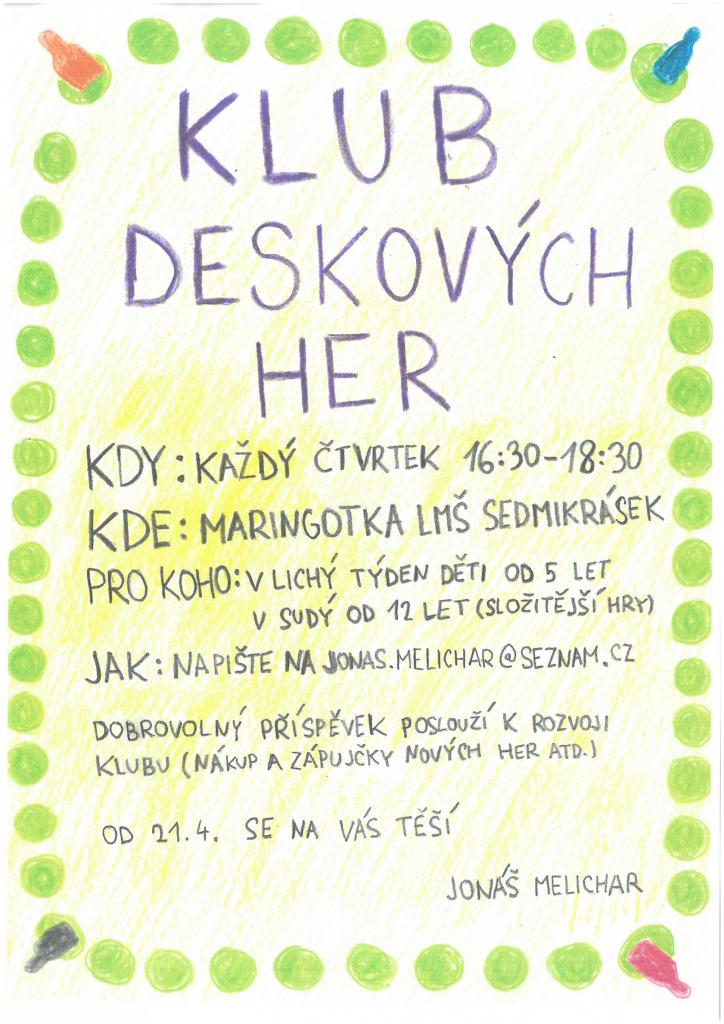 KLUB
DESKOVÝCH
HER
KDY: KAŽDÝ ČTVRTEK 16:30-18:30
KDE: MARINGOTKA LMŠ SEDMIKRÁSEK
PRO KOHO: V LICHÝ TÝDEN DĚTI OD 5 LET
V SUDÝ OD 12 LET (SLOŽITĚJŠÍ HRY)
JAK: NAPIŠTE NA JONAS.MELICHAR@SEZNAM.CZ
DOBROVOLNÝ PŘÍSPĚVEK POSLOUŽÍ K ROZVOJI
KLUBU (NÁKUP A ZÁPUJČKY NOVÝCH HER ATD.)
OD 21.4. SE NA VÁS TĚŠÍ
JONÁŠ MELICHAR